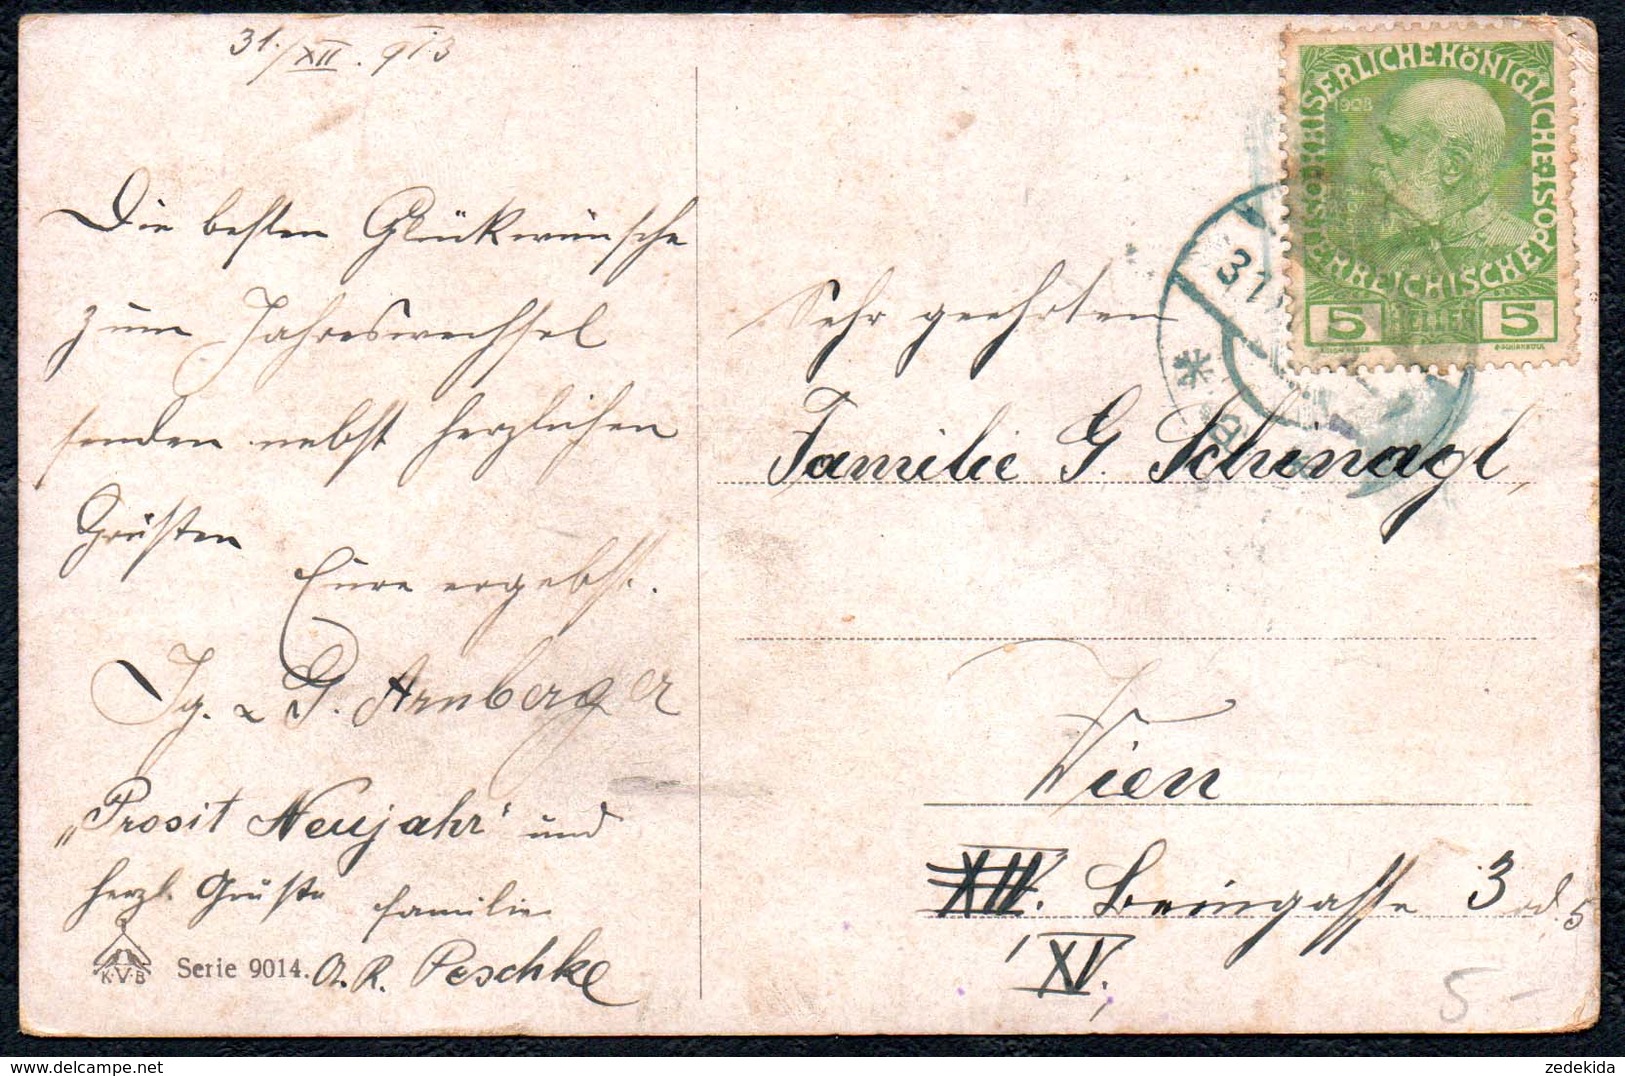 31./XII. 913
Die besten Glückwünsche
zum Jahreswechsel
senden nebst herzlichen
Grüsten
Eure ergebst.
Ig. u. G. Arnberger
„Prosit Neujahr“ und
herzl. Grüste familie
O. R. Peschke
K·V·B
Serie 9014.
KAISERLICHEKÖNIGLICHE
ÖSTERREICHISCHE POST
1908
5 HELLER 5
31
Sehr geehrten
Familie G. Schinagl,
Wien
XIII. Beingasse 3 od. 5
XV.
5-
zedekida